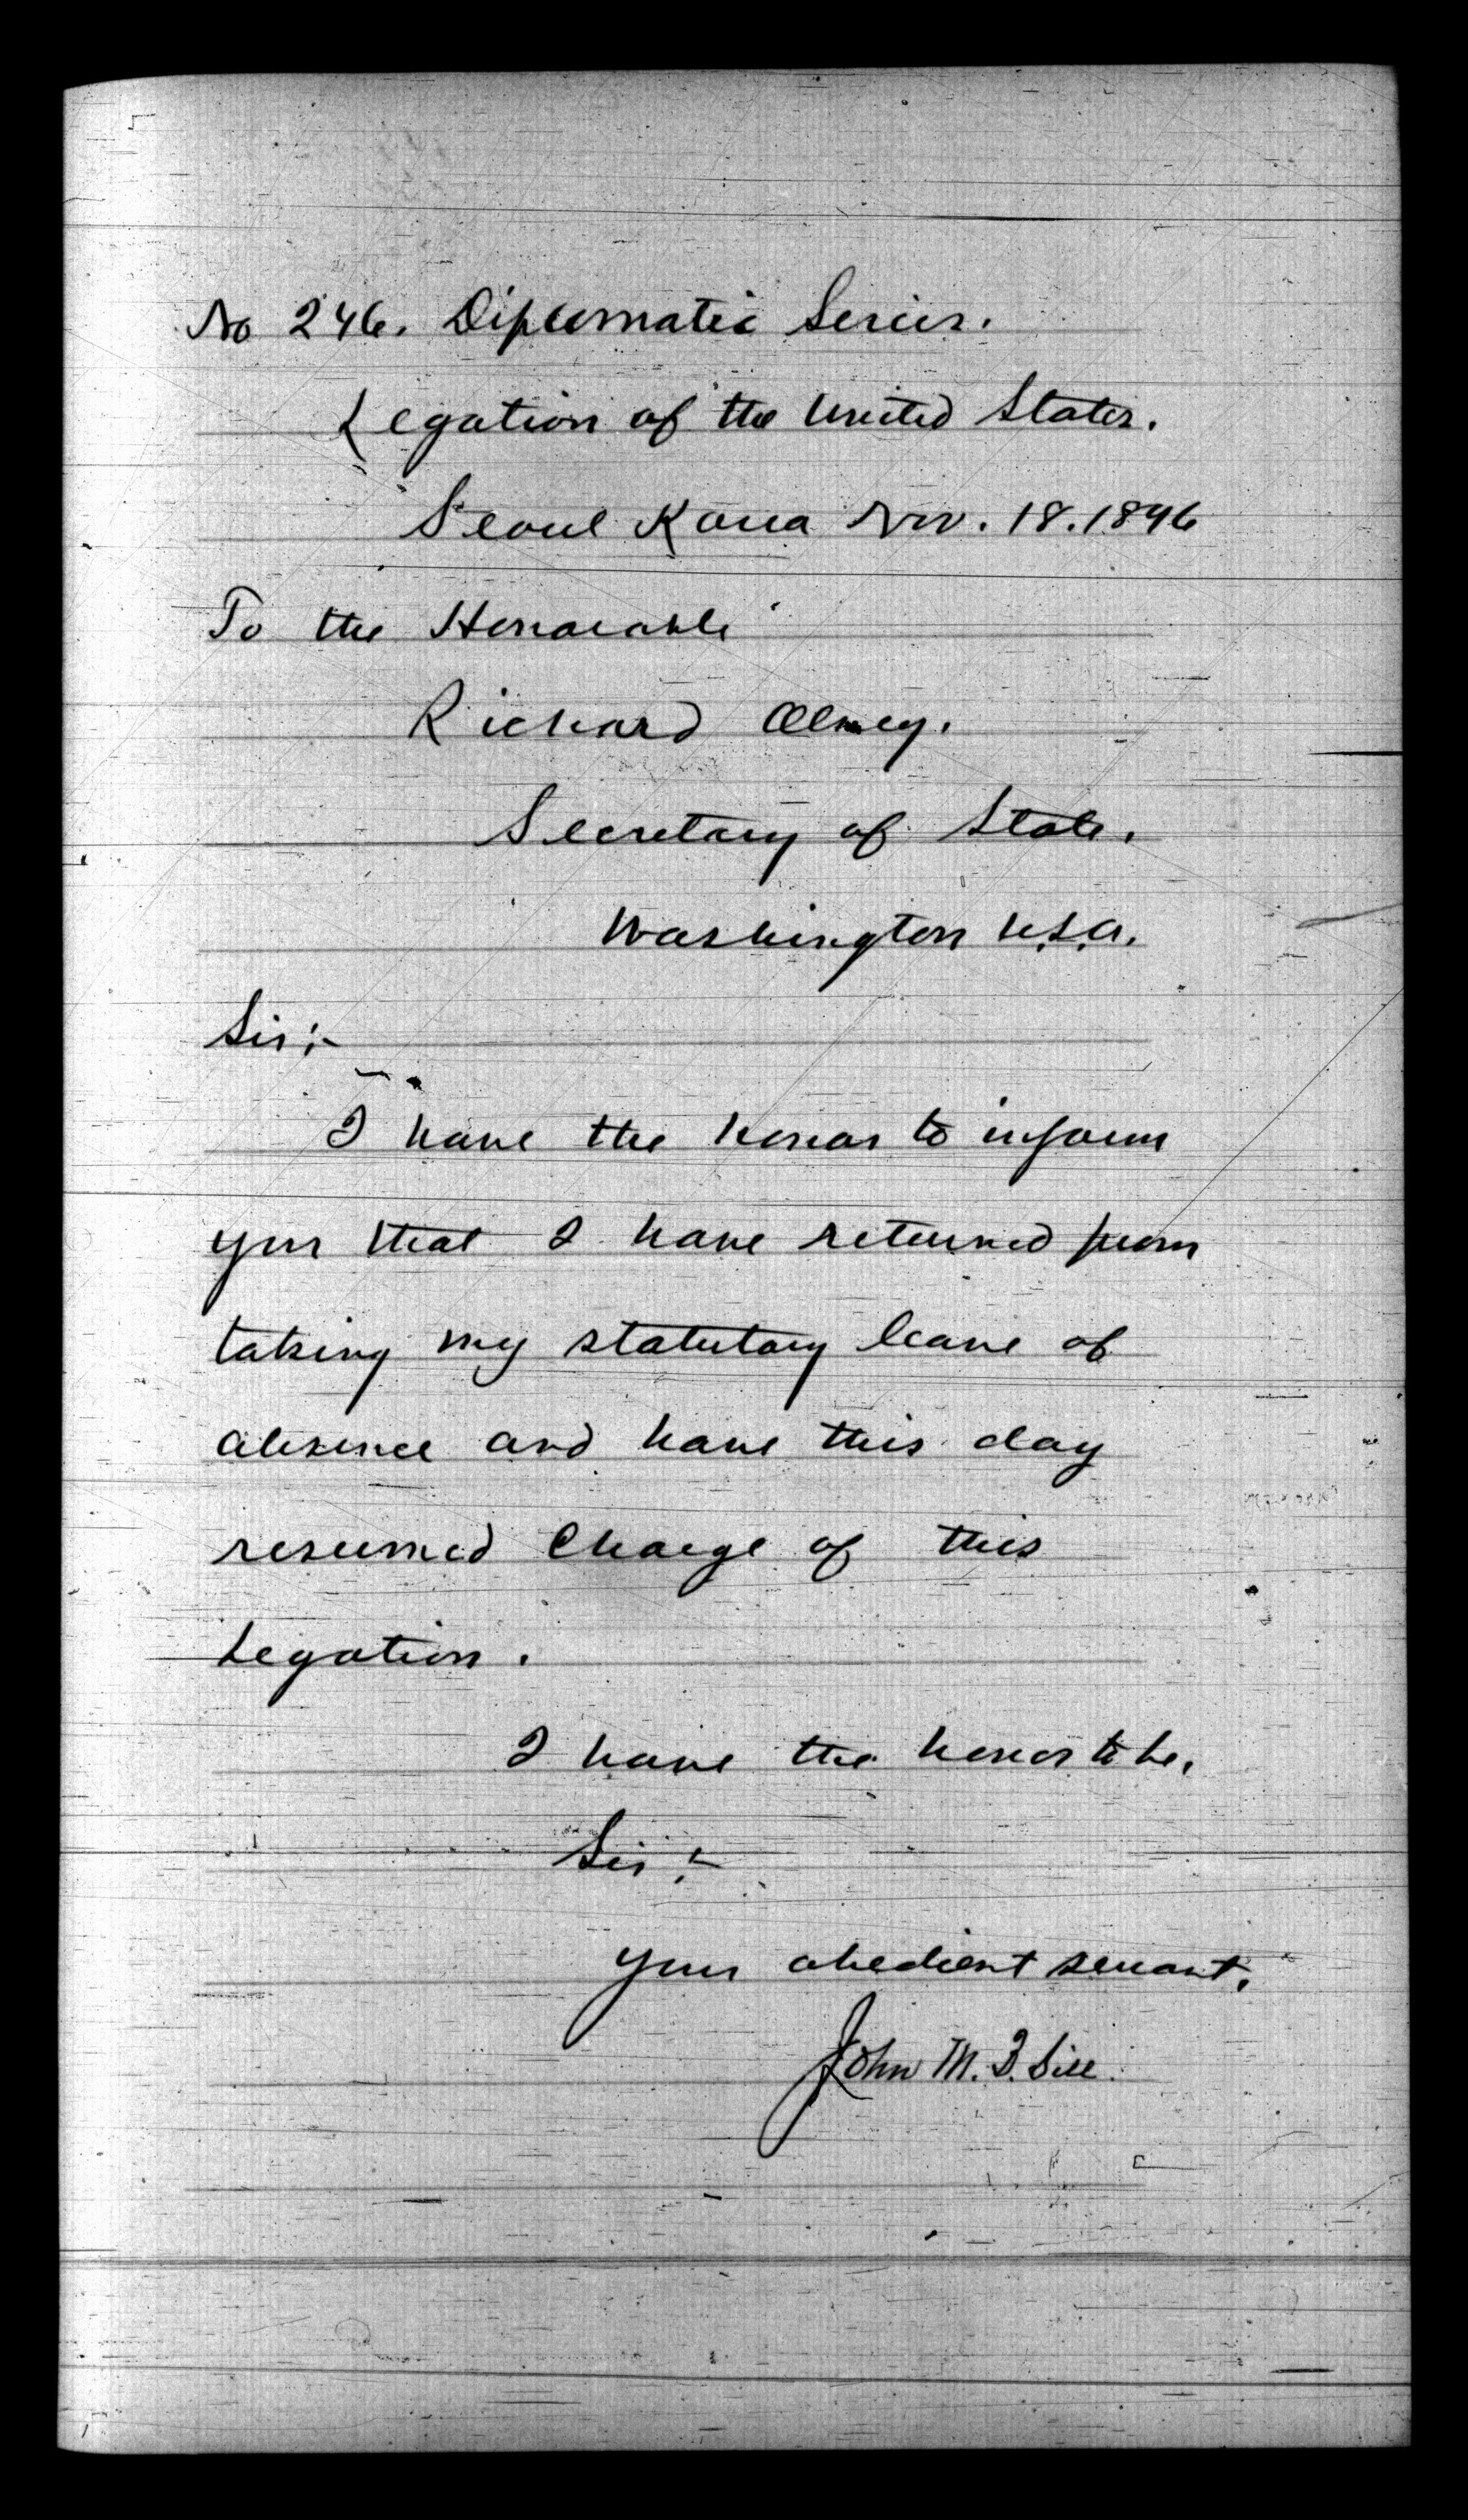 No 246. Diplomatic Series.
Legation of the United States.
Seoul Korea Nov. 18. 1896
To the Honorable
Richard Olney.
Secretary of State.
Washington U.S.A.
Sir:-
I have the honor to inform
you that I have returned from
taking my statutory leave of
absence and have this day
resumed Charge of this
Legation.
I have the honor to be,
Sir:-
Your obedient servant,
John M. B. Sill.